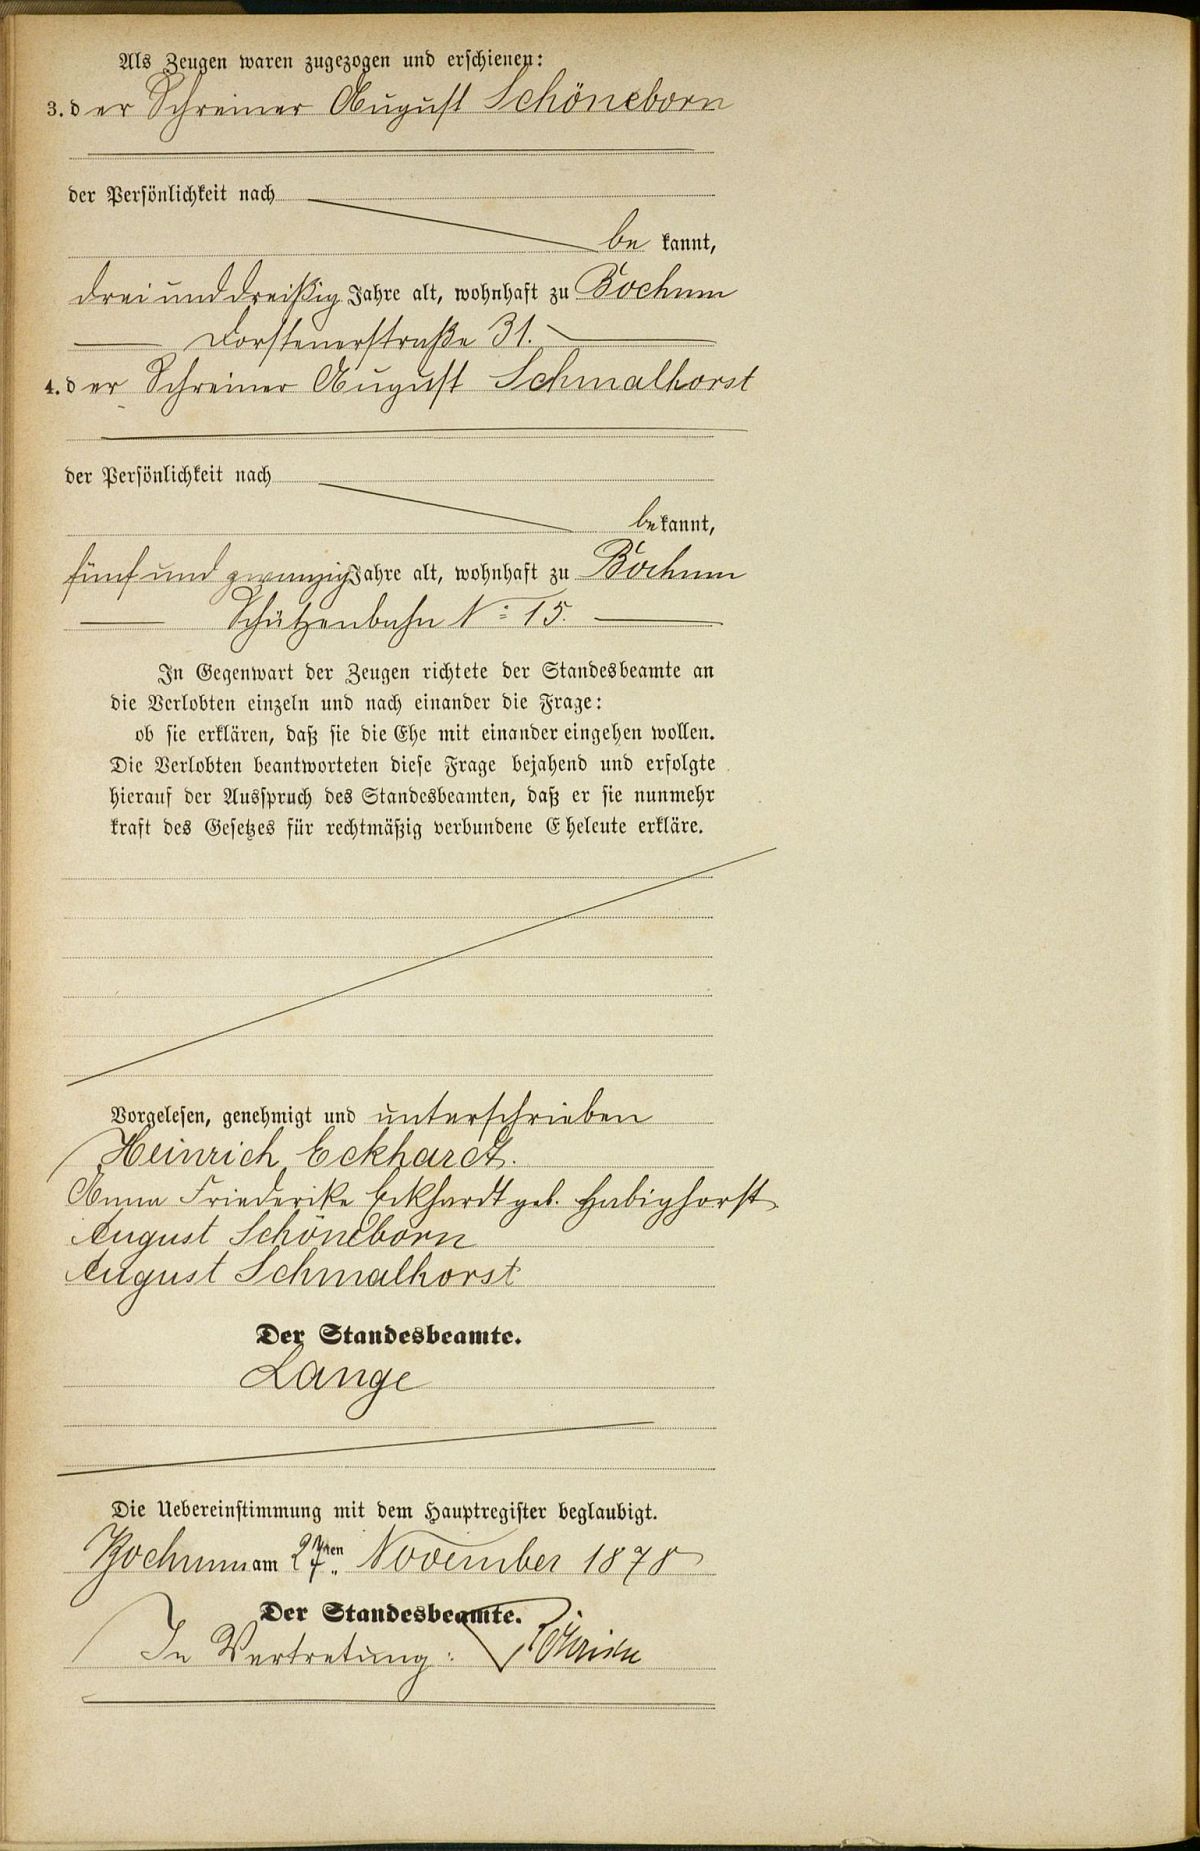 Als Zeugen waren zugezogen und erschienen:
3. der Schreiner August Schöneborn
der Persönlichkeit nach
be kannt,
dreiunddreißig Jahre alt, wohnhaft zu Bochum
Dorstenerstraße 31.
4. der Schreiner August Schmalhorst
der Persönlichkeit nach
bekannt,
fünf und zwanzig Jahre alt, wohnhaft zu Bochum
Schützenbahn No 15.
In Gegenwart der Zeugen richtete der Standesbeamte an
die Verlobten einzeln und nach einander die Frage:
ob sie erklären, daß sie die Ehe mit einander eingehen wollen.
Die Verlobten beantworteten diese Frage bejahend und erfolgte
hierauf der Ausspruch des Standesbeamten, daß er sie nunmehr
kraft des Gesetzes für rechtmäßig verbundene Eheleute erkläre.
Vorgelesen, genehmigt und unterschrieben
Heinrich Eckhardt.
Anna Friederike Eckhardt geb. Habighorst
August Schöneborn
August Schmalhorst
Der Standesbeamte.
Lange
Die Uebereinstimmung mit dem Hauptregister beglaubigt.
Bochum am 27ten November 1878
Der Standesbeamte.
In Vertretung: